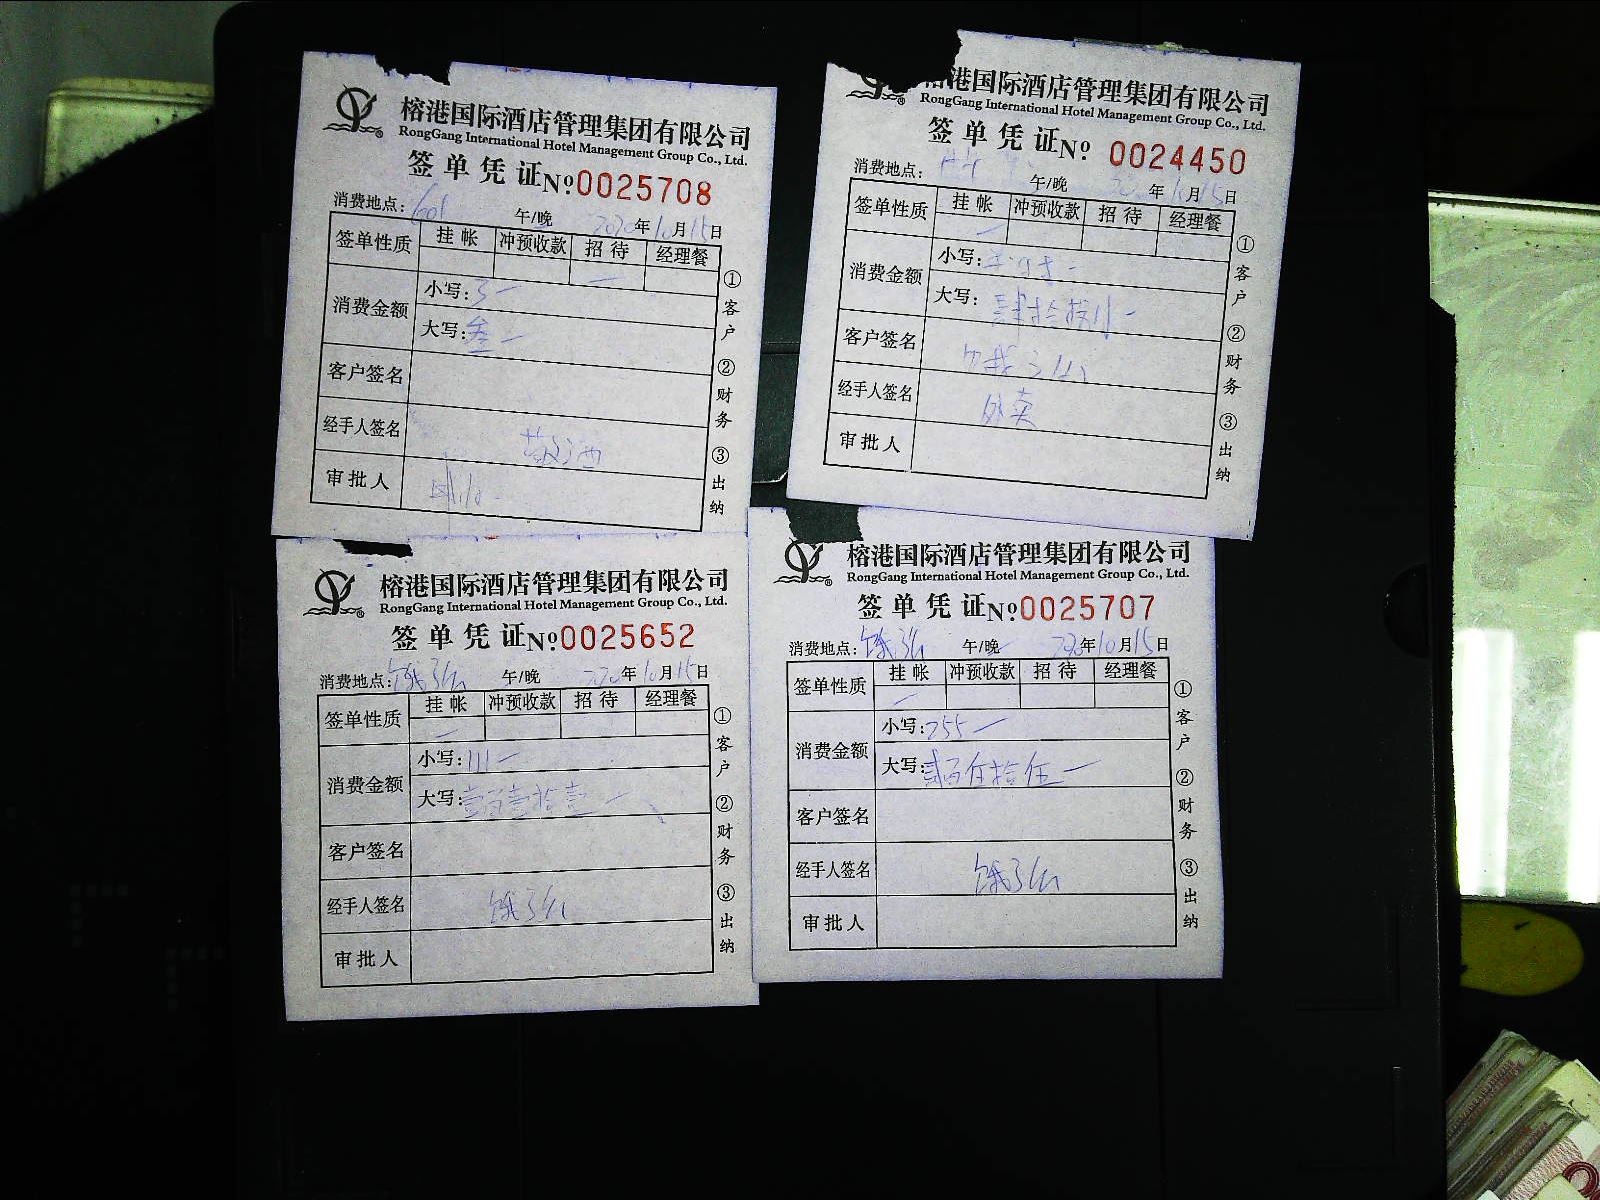 榕港国际酒店管理集团有限公司
RongGang International Hotel Management Group Co., Ltd.
签单凭证 No 0025708
消费地点: 601 午/晚 2020年10月15日
签单性质 挂帐 冲预收款 招待 经理餐
消费金额
小写: 3一
大写: 叁一
客户签名
经手人签名 敬酒
审批人
①客户 ②财务 ③出纳
港国际酒店管理集团有限公司
RongGang International Hotel Management Group Co., Ltd.
签单凭证 No 0024450
消费地点: 午/晚 年10月15日
签单性质 挂帐 冲预收款 招待 经理餐
消费金额
小写:
大写:
客户签名
经手人签名 外卖
审批人
①客户 ②财务 ③出纳
榕港国际酒店管理集团有限公司
RongGang International Hotel Management Group Co., Ltd.
签单凭证 No 0025652
消费地点: 饿了么 午/晚 2020年10月15日
签单性质 挂帐 冲预收款 招待 经理餐
消费金额
小写: 111一
大写: 壹百壹拾壹一
客户签名
经手人签名 饿了么
审批人
①客户 ②财务 ③出纳
榕港国际酒店管理集团有限公司
RongGang International Hotel Management Group Co., Ltd.
签单凭证 No 0025707
消费地点: 饿了么 午/晚 2020年10月15日
签单性质 挂帐 冲预收款 招待 经理餐
消费金额
小写: 255一
大写: 贰百伍拾伍一
客户签名
经手人签名 饿了么
审批人
①客户 ②财务 ③出纳